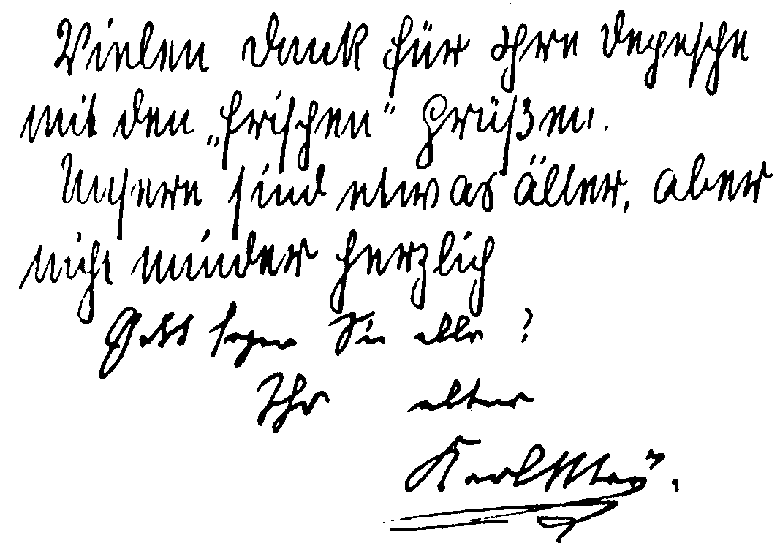 Vielen Dank für Ihre Depesche
mit den „frischen“ Grüßen.
Unsere sind etwas älter, aber
nicht minder herzlich
Gott segne Sie alle!
Ihr alter
Karl May.